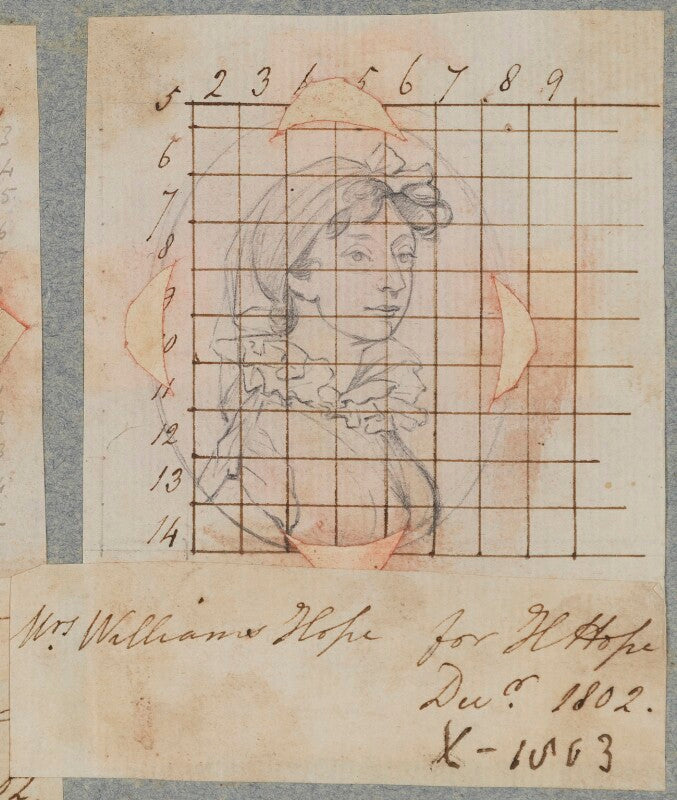 2 3 4 5 6 7 8 9
5
6
7
8
9
0
11
12
13
14
Mrs Williams Hope for H Hope
Decr. 1802.
X-1803